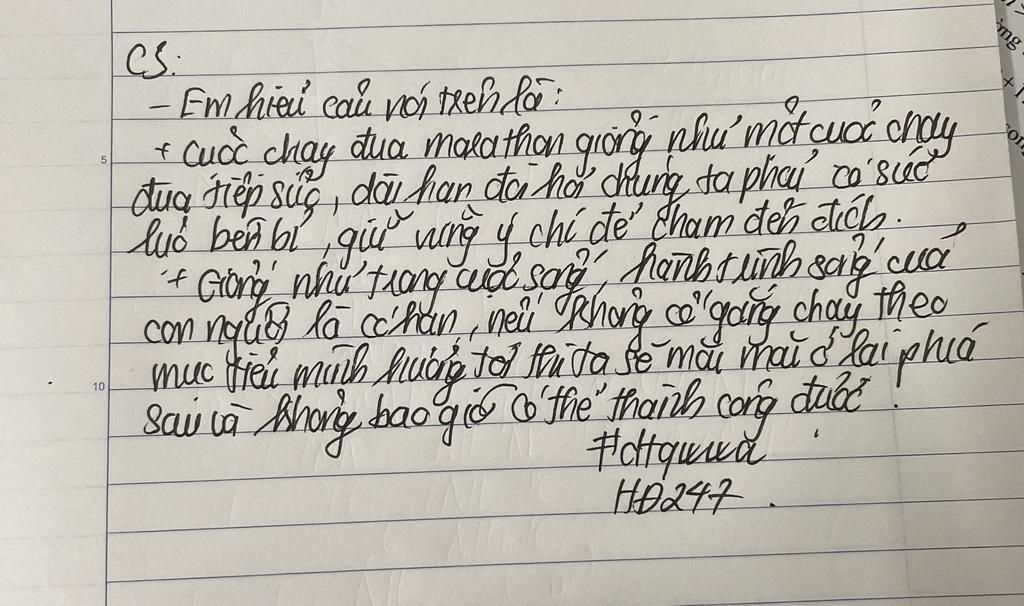 C5:
- Em hiểu câu nói trên là:
+ cuộc chạy đua marathon giống như một cuộc chạy
đua tiếp sức, dài hạn đòi hỏi chúng ta phải có sức
lực bền bỉ, giữ vững ý chí để chạm đến đích.
+ Giống như trong cuộc sống, hành trình sống của
con người là có hạn, nếu không cố gắng chạy theo
mục tiêu mình hướng tới thì ta sẽ mãi mãi ở lại phía
sau và không bao giờ có thể thành công được.
HĐ247